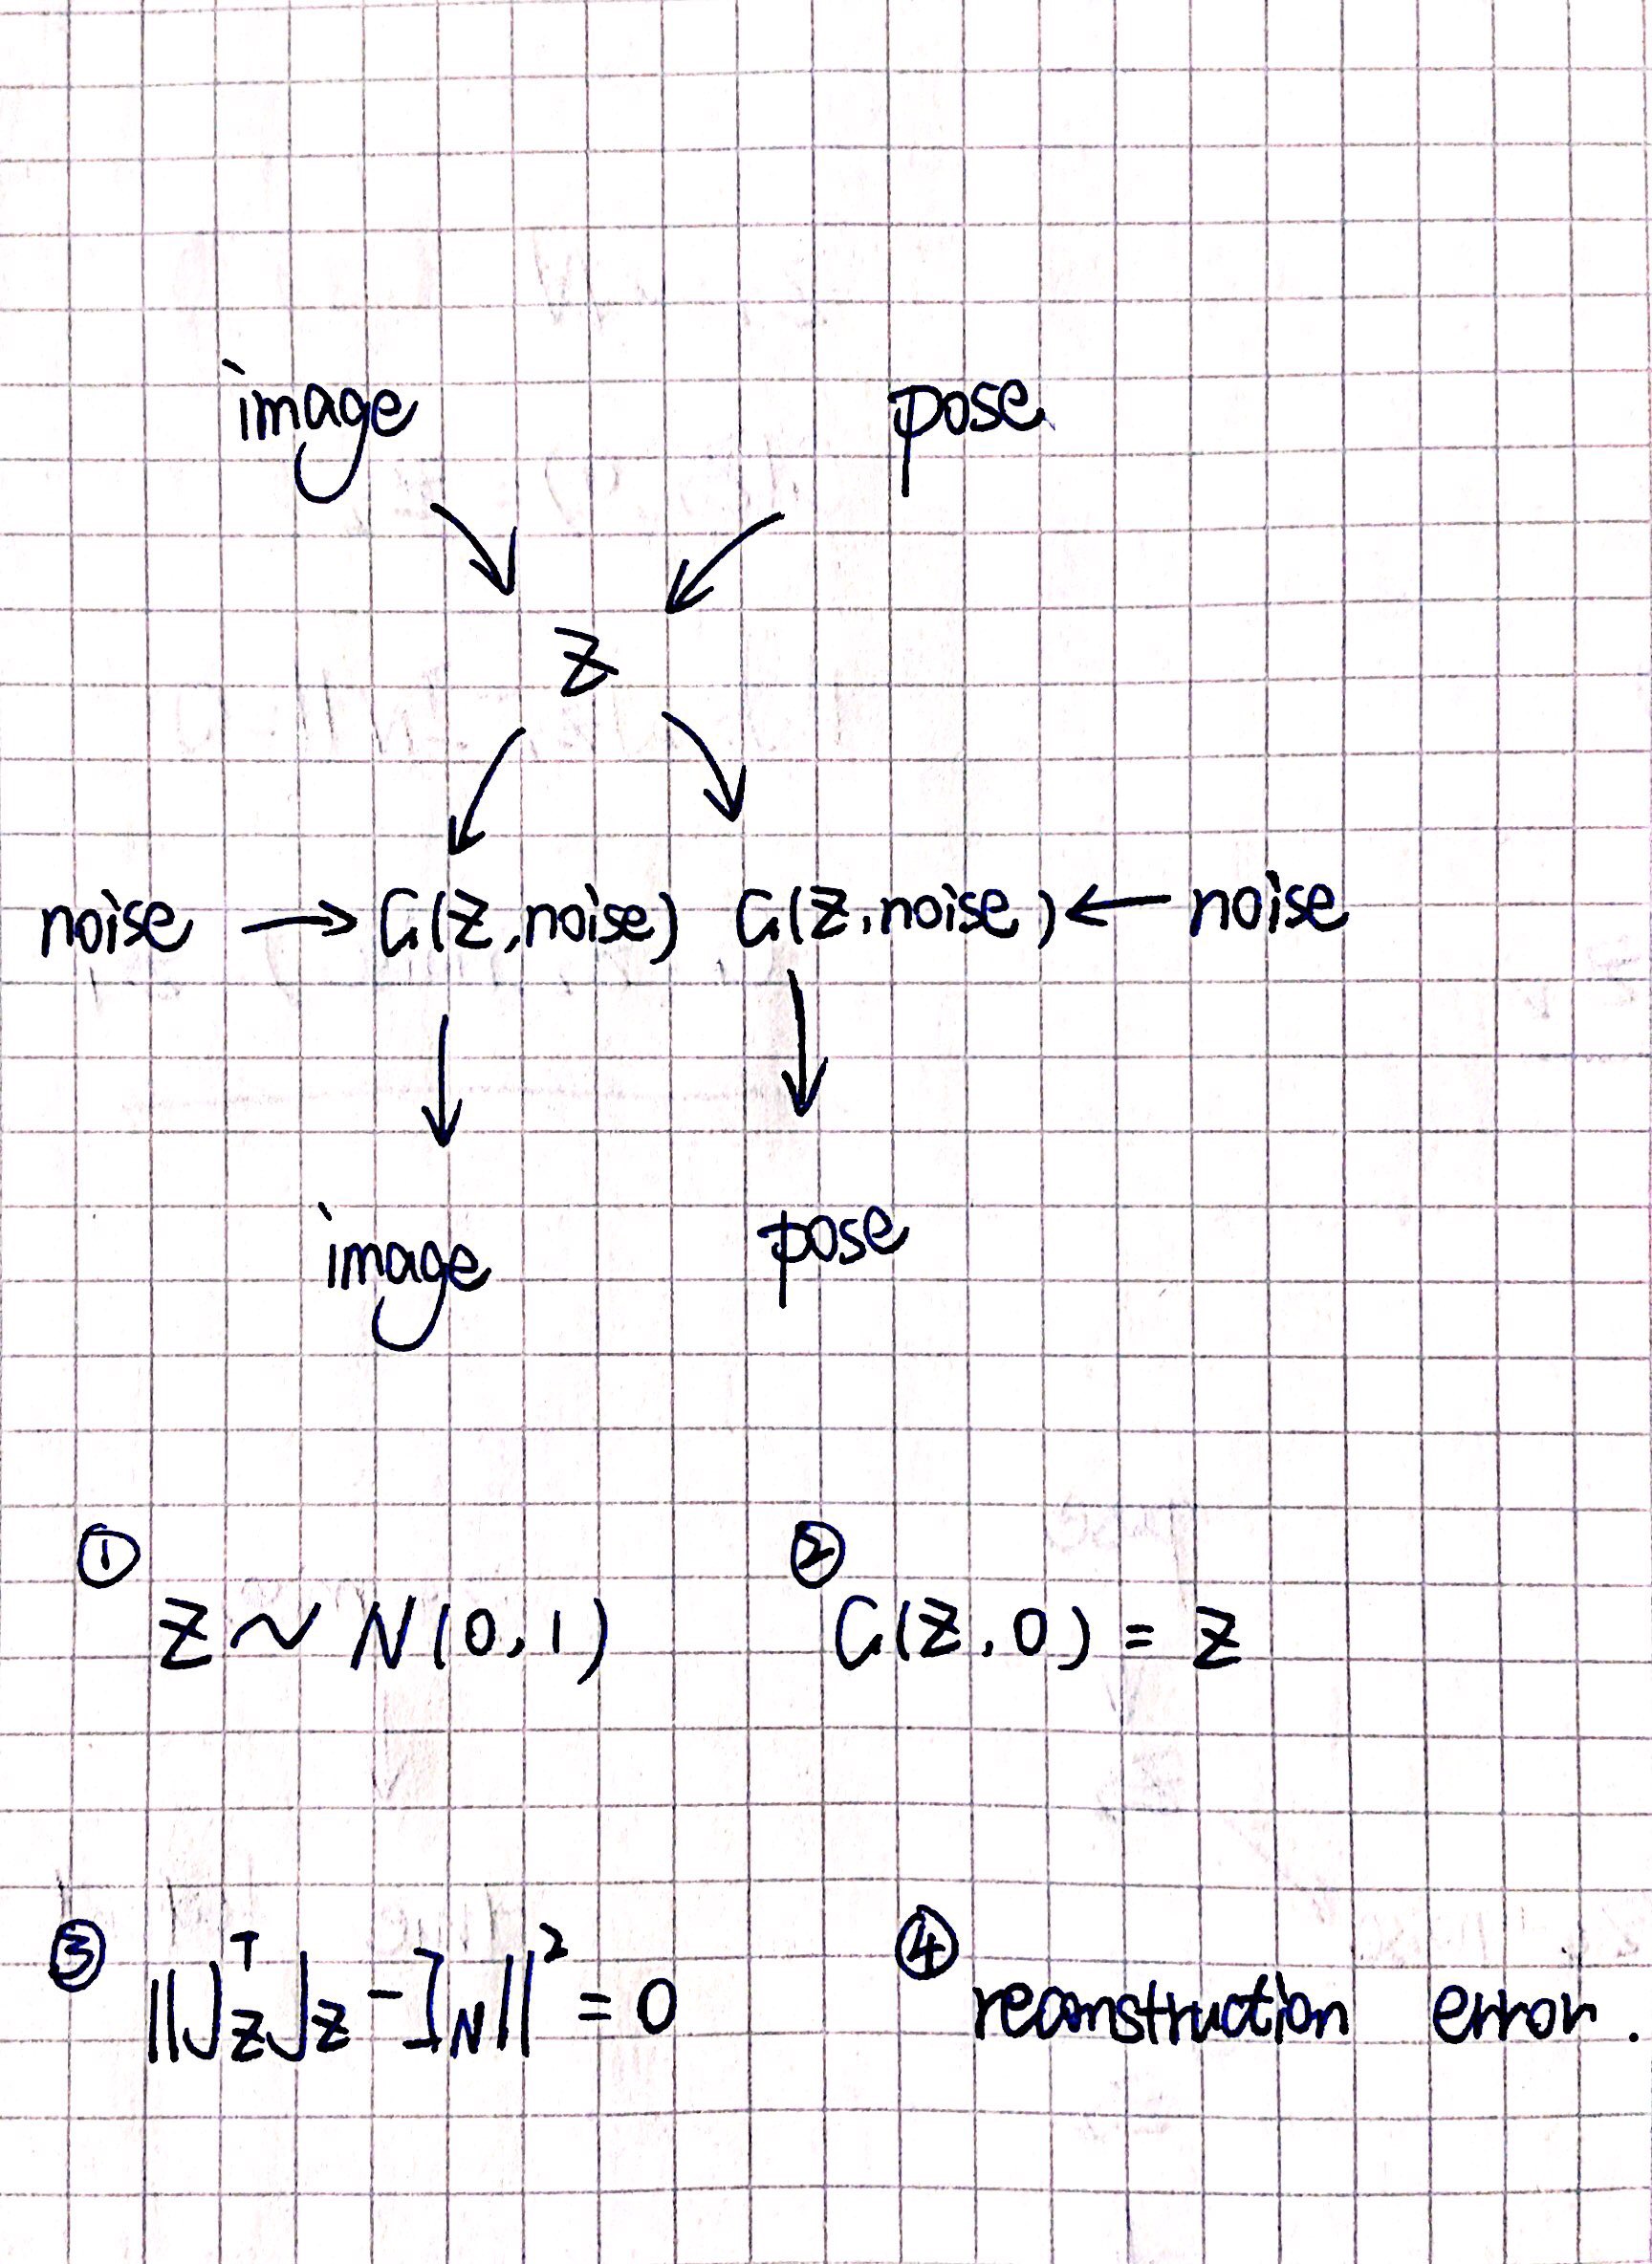 image pose
z
noise → G(z, noise) G(z, noise) ← noise
image pose
① z ~ N(0, 1) ② G(z, 0) = z
③ ||J_z^T J_z - I_N||^2 = 0 ④ reconstruction error.